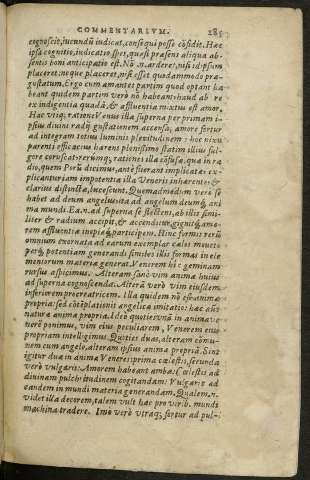 COMMENTARIVM. 285
cognoscit, iucundũ iudicat, consequi posse cōfidit. Hæc
ipsa cognitio, iudicatio spes, quasi præsens aliqua ab-
sentis boni anticipatio est. Nō .n. arderet nisi id ipsum
placeret: neque placeret, nisi esset quodammodo præ-
gustatum. Ergo cum amantes partim quod optant ha-
beant quidem partim verò nō habeant: haud ab re
ex indigentia quadā, & affluentia mixtus est amor.
Hac vtiq; ratione Venus illa superna per primam i-
psius diuini radij gustationem accensa, amore fertur
ad integram totius luminis plenitudinem: hoc nixu
parenti efficacius hærens plenissimo statim illius ful-
gore coruscat: rerumq; rationes illæ cōfusæ, quæ in ra-
dio, quem Porũ dicimus, ante fuerant implicatæ ex-
plicantur iam in potentia illa Veneris inhærente: &
clarius distinctæ, lucescunt. Quemadmodum verò se
habet ad deum angelus: ita ad angelum deumq; ani-
ma mundi. Ea .n. ad superna se flectens, ab illis simi-
liter & radium accipit, & accenditur, gignitq; amo-
rem affluentiæ inopiæq; participem. Hinc formis rerũ
omnium exornata ad earum exemplar cælos mouet:
perq; potentiam generandi similes illis formas in ele-
mentorum materia generat. Venerem hîc geminam
rursus aspicimus. Alteram sanè vim animæ huius
ad superna cognoscenda. Alterā verò vim eiusdem
inferiorem procreatricem. Illa quidem nō est animæ
propria: sed cōtēplationis angelicæ imitatio: hæc aũt
naturæ animæ propria. Ideo quoties vnā in anima Ve-
nerē ponimus, vim eius peculiarem, Venerem eius
propriam intelligimus. Quoties duas, alteram cōmu-
nem cum angelo, alteram ipsius animæ propriā. Sint
igitur duæ in anima Veneres: prima cælestis, secunda
verò vulgaris: Amorem habeant ambæ: Cælestis ad
diuinam pulchritudinem cogitandam: Vulgaris ad
eandem in mundi materia generandam. Qualem .n.
videt illa decorem, talem vult hæc pro virib. mundi
machinæ tradere. Imò verò vtraq; fertur ad pul-